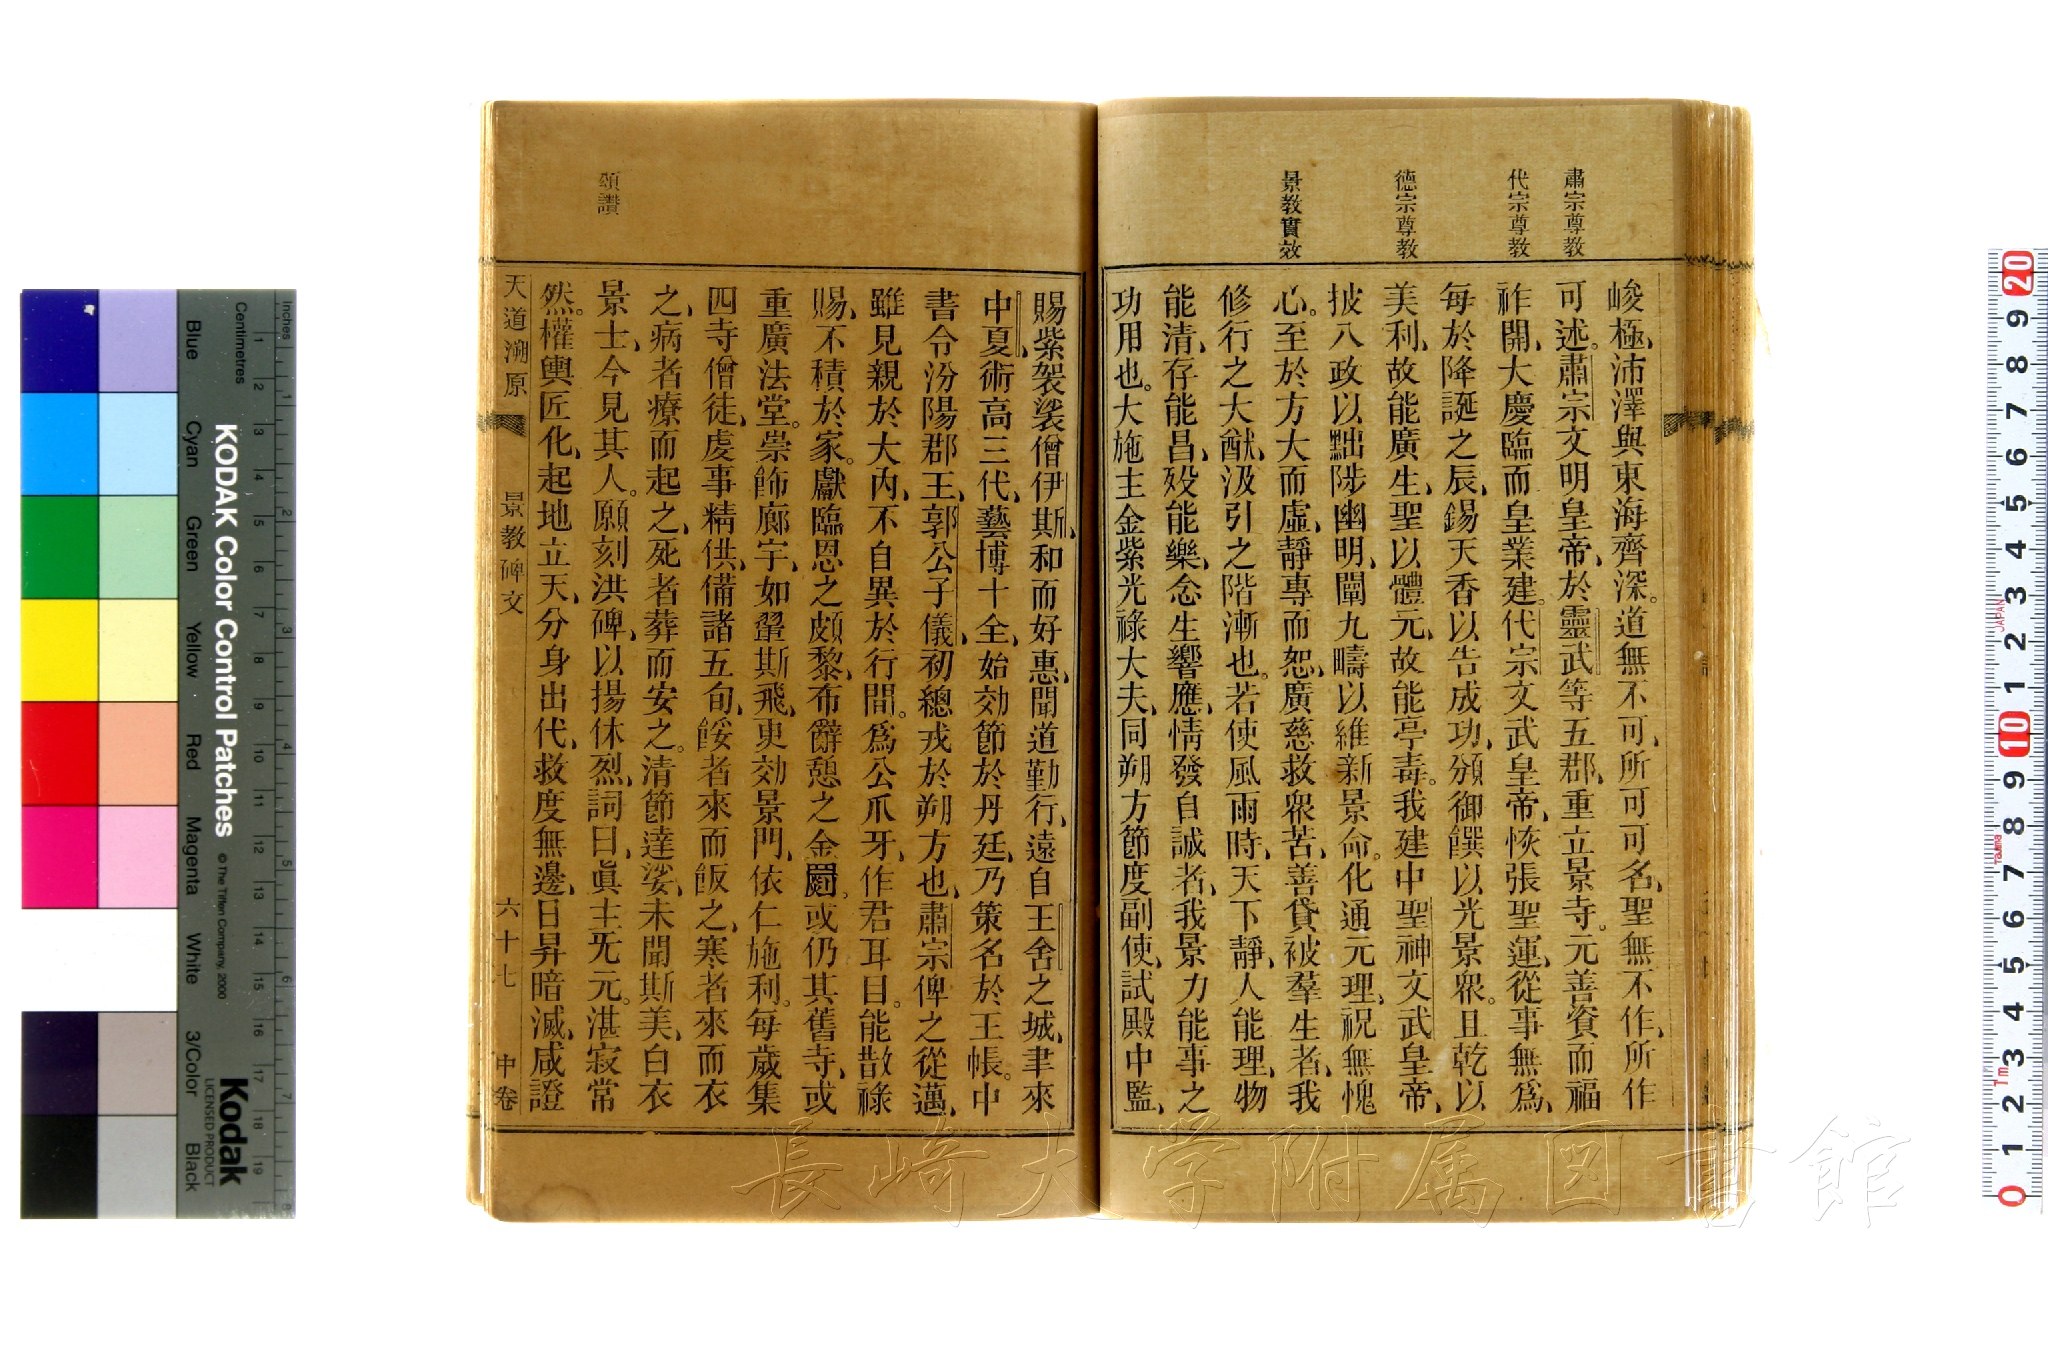 肅宗尊教
代宗尊教
德宗尊教
景教實效
峻極、沛澤與東海齊深。道無不可、所可可名、聖無不作、所作
可述。肅宗文明皇帝、於靈武等五郡、重立景寺。元善資而福
祚開、大慶臨而皇業建。代宗文武皇帝、恢張聖運、從事無爲、
每於降誕之辰、錫天香以告成功、頒御饌以光景衆。且乾以
美利、故能廣生、聖以體元、故能亭毒。我建中聖神文武皇帝、
披八政以黜陟幽明、闡九疇以維新景命。化通元理、祝無愧
心。至於方大而虛、靜專而恕、廣慈救衆苦、善貸被羣生者、我
修行之大猷、汲引之階漸也。若使風雨時、天下靜、人能理、物
能清、存能昌、歿能樂、念生響應、情發自誠者、我景力能事之
功用也。大施主金紫光祿大夫、同朔方節度副使、試殿中監、
頌讚
賜紫袈裟僧伊斯、和而好惠、聞道勤行、遠自王舍之城、聿來
中夏、術高三代、藝博十全、始効節於丹廷、乃策名於王帳。中
書令汾陽郡王、郭公子儀、初總戎於朔方也、肅宗俾之從邁、
雖見親於大內、不自異於行間。爲公爪牙、作君耳目。能散祿
賜、不積於家。獻臨恩之頗黎、布辭憩之金罽。或仍其舊寺、或
重廣法堂。崇飾廊宇、如翬斯飛、更効景門、依仁施利。每歲集
四寺僧徒、虔事精供、備諸五旬、餒者來而飯之、寒者來而衣
之、病者療而起之、死者葬而安之。清節達娑、未聞斯美、白衣
景士、今見其人。願刻洪碑、以揚休烈、詞曰、眞主旡元。湛寂常
然。權輿匠化、起地立天、分身出代、救度無邊、日昇暗滅、咸證
天道溯原 景教碑文 六十七 中卷
長崎大学附属図書館
KODAK Color Control Patches
© The Tiffen Company, 2000
Kodak
LICENSED PRODUCT
Inches
Centimetres
Blue
Cyan
Green
Yellow
Red
Magenta
White
3/Color
Black
JAPAN